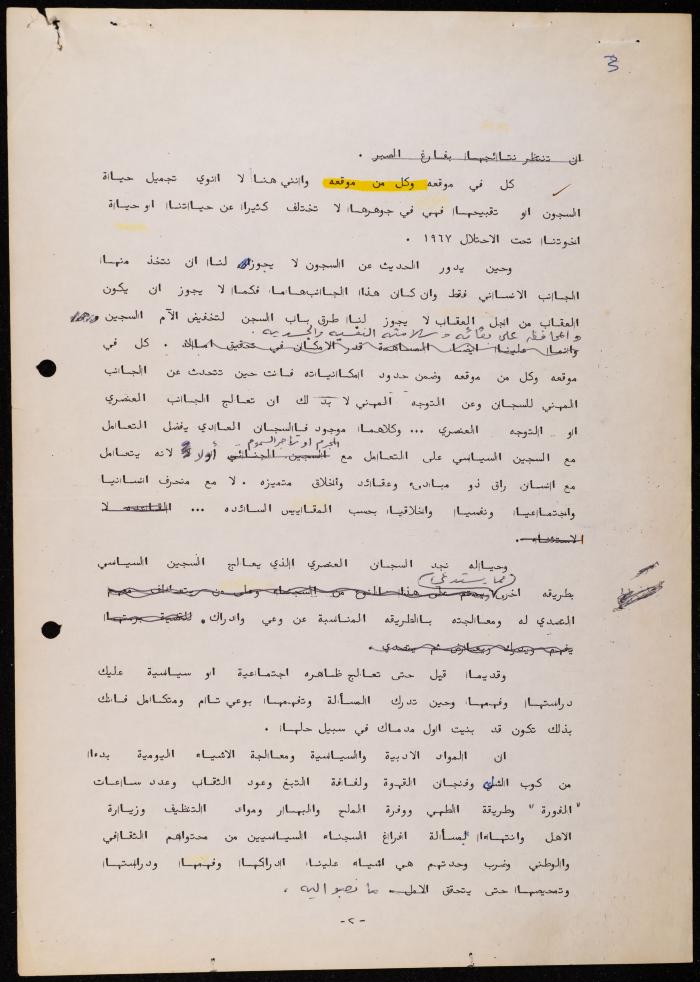 3
ان تنتظر نتائجها بفارغ الصبر .
كل في موقعه وكل من موقعه وانني هنا لا انوي تجميل حياة
السجون او تقبيحها فهي في جوهرها لا تختلف كثيرا عن حياتنا او حياة
اخوتنا تحت الاحتلال ١٩٦٧ .
وحين يدور الحديث عن السجون لا يجوز لنا ان نتخذ منها
الجانب الانساني فقط وان كان هذا الجانب هاما فكما لا يجوز ان يكون
العقاب من اجل العقاب لا يجوز لنا طرق باب السجن لتخفيض الآم السجين
والمحافظة على بقائه وسلامته النفسيه والجسديه .
وانما علينا ايضا المساهمة قدر الامكان في تحقيق . كل في
موقعه وكل من موقعه وضمن حدود امكانياته فانت حين تتحدث عن الجانب
المهني للسجان وعن التوجه المهني لا بد لك ان تعالج الجانب العنصري
او التوجه العنصري ... وكلاهما موجود فالسجان العادي يفضل التعامل
المجرم او تاجر السموم
مع السجين السياسي على التعامل مع السجين الجنائي أولا لانه يتعامل
مع انسان راق ذو مبادىء وعقائد واخلاق متميزه . لا مع منحرف انسانيا
واجتماعيا ونفسيا واخلاقيا بحسب المقاييس السائده ... القاعده لا
الاستثناء .
وحياله نجد السجان العنصري الذي يعالج السجين السياسي
(مما يستدعي)
بطريقه اخرى على هذا النوع من السجناء وعلى من
التصدي له ومعالجته بالطريقه المناسبة عن وعي وادراك .
يفهم ويدرك ويعارض ثم يتصدى .
وقديما قيل حتى تعالج ظاهره اجتماعية او سياسية عليك
دراستها وفهمها وحين تدرك المسألة وتفهمها بوعي تام ومتكامل فانك
بذلك تكون قد بنيت اول مدماك في سبيل حلها .
ان المواد الادبية والسياسية ومعالجة الاشياء اليومية بدءا
من كوب الشاي وفنجان القهوة ولفافة التبغ وعود الثقاب وعدد ساعات
" الفورة " وطريقة الطهي ووفرة الملح والبهار ومواد التنظيف وزيارة
الاهل وانتهاءا بمسألة افراغ السجناء السياسيين من محتواهم الثقافي
والوطني وضرب وحدتهم هي اشياء علينا ادراكها وفهمها ودراستها
وتمحيصها حتى يتحقق الامل ما نصبو اليه .
-٢-